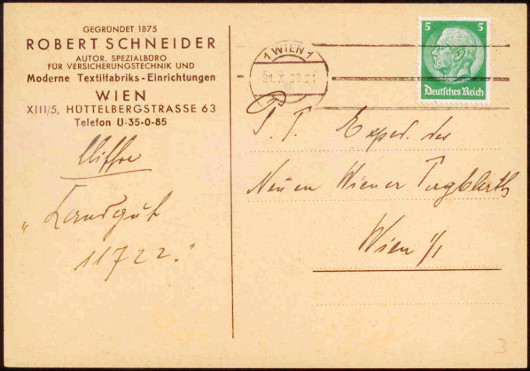 GEGRÜNDET 1875
ROBERT SCHNEIDER
AUTOR. SPEZIALBÜRO
FÜR VERSICHERUNGSTECHNIK UND
Moderne Textilfabriks-Einrichtungen
WIEN
XIII/5, HÜTTELBERGSTRASSE 63
Telefon U-35-0-85
Chiffre
„Landgut
11722."
1 WIEN 1
5 5
Deutsches Reich
P. T. Exped. des
Neuen Wiener Tagblatts
Wien 1/1
3